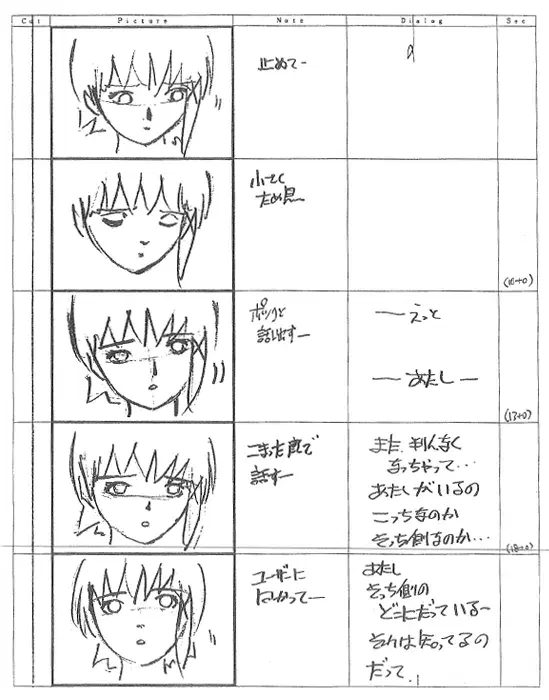 Cut Picture Note Dialog Sec
止めて—
小さく
ため息
(10+0)
ポツリと
話し出す—
— えっと
— あたし —
(13+0)
こまった風で
話す—
また、判んなく
なっちゃって…
あたしがいるの
こっちなのか
そっち側なのか…
(18+0)
ユーザーに
むかって—
あたし
そっち側の
どこにだっている—
それは知ってるの
だって、